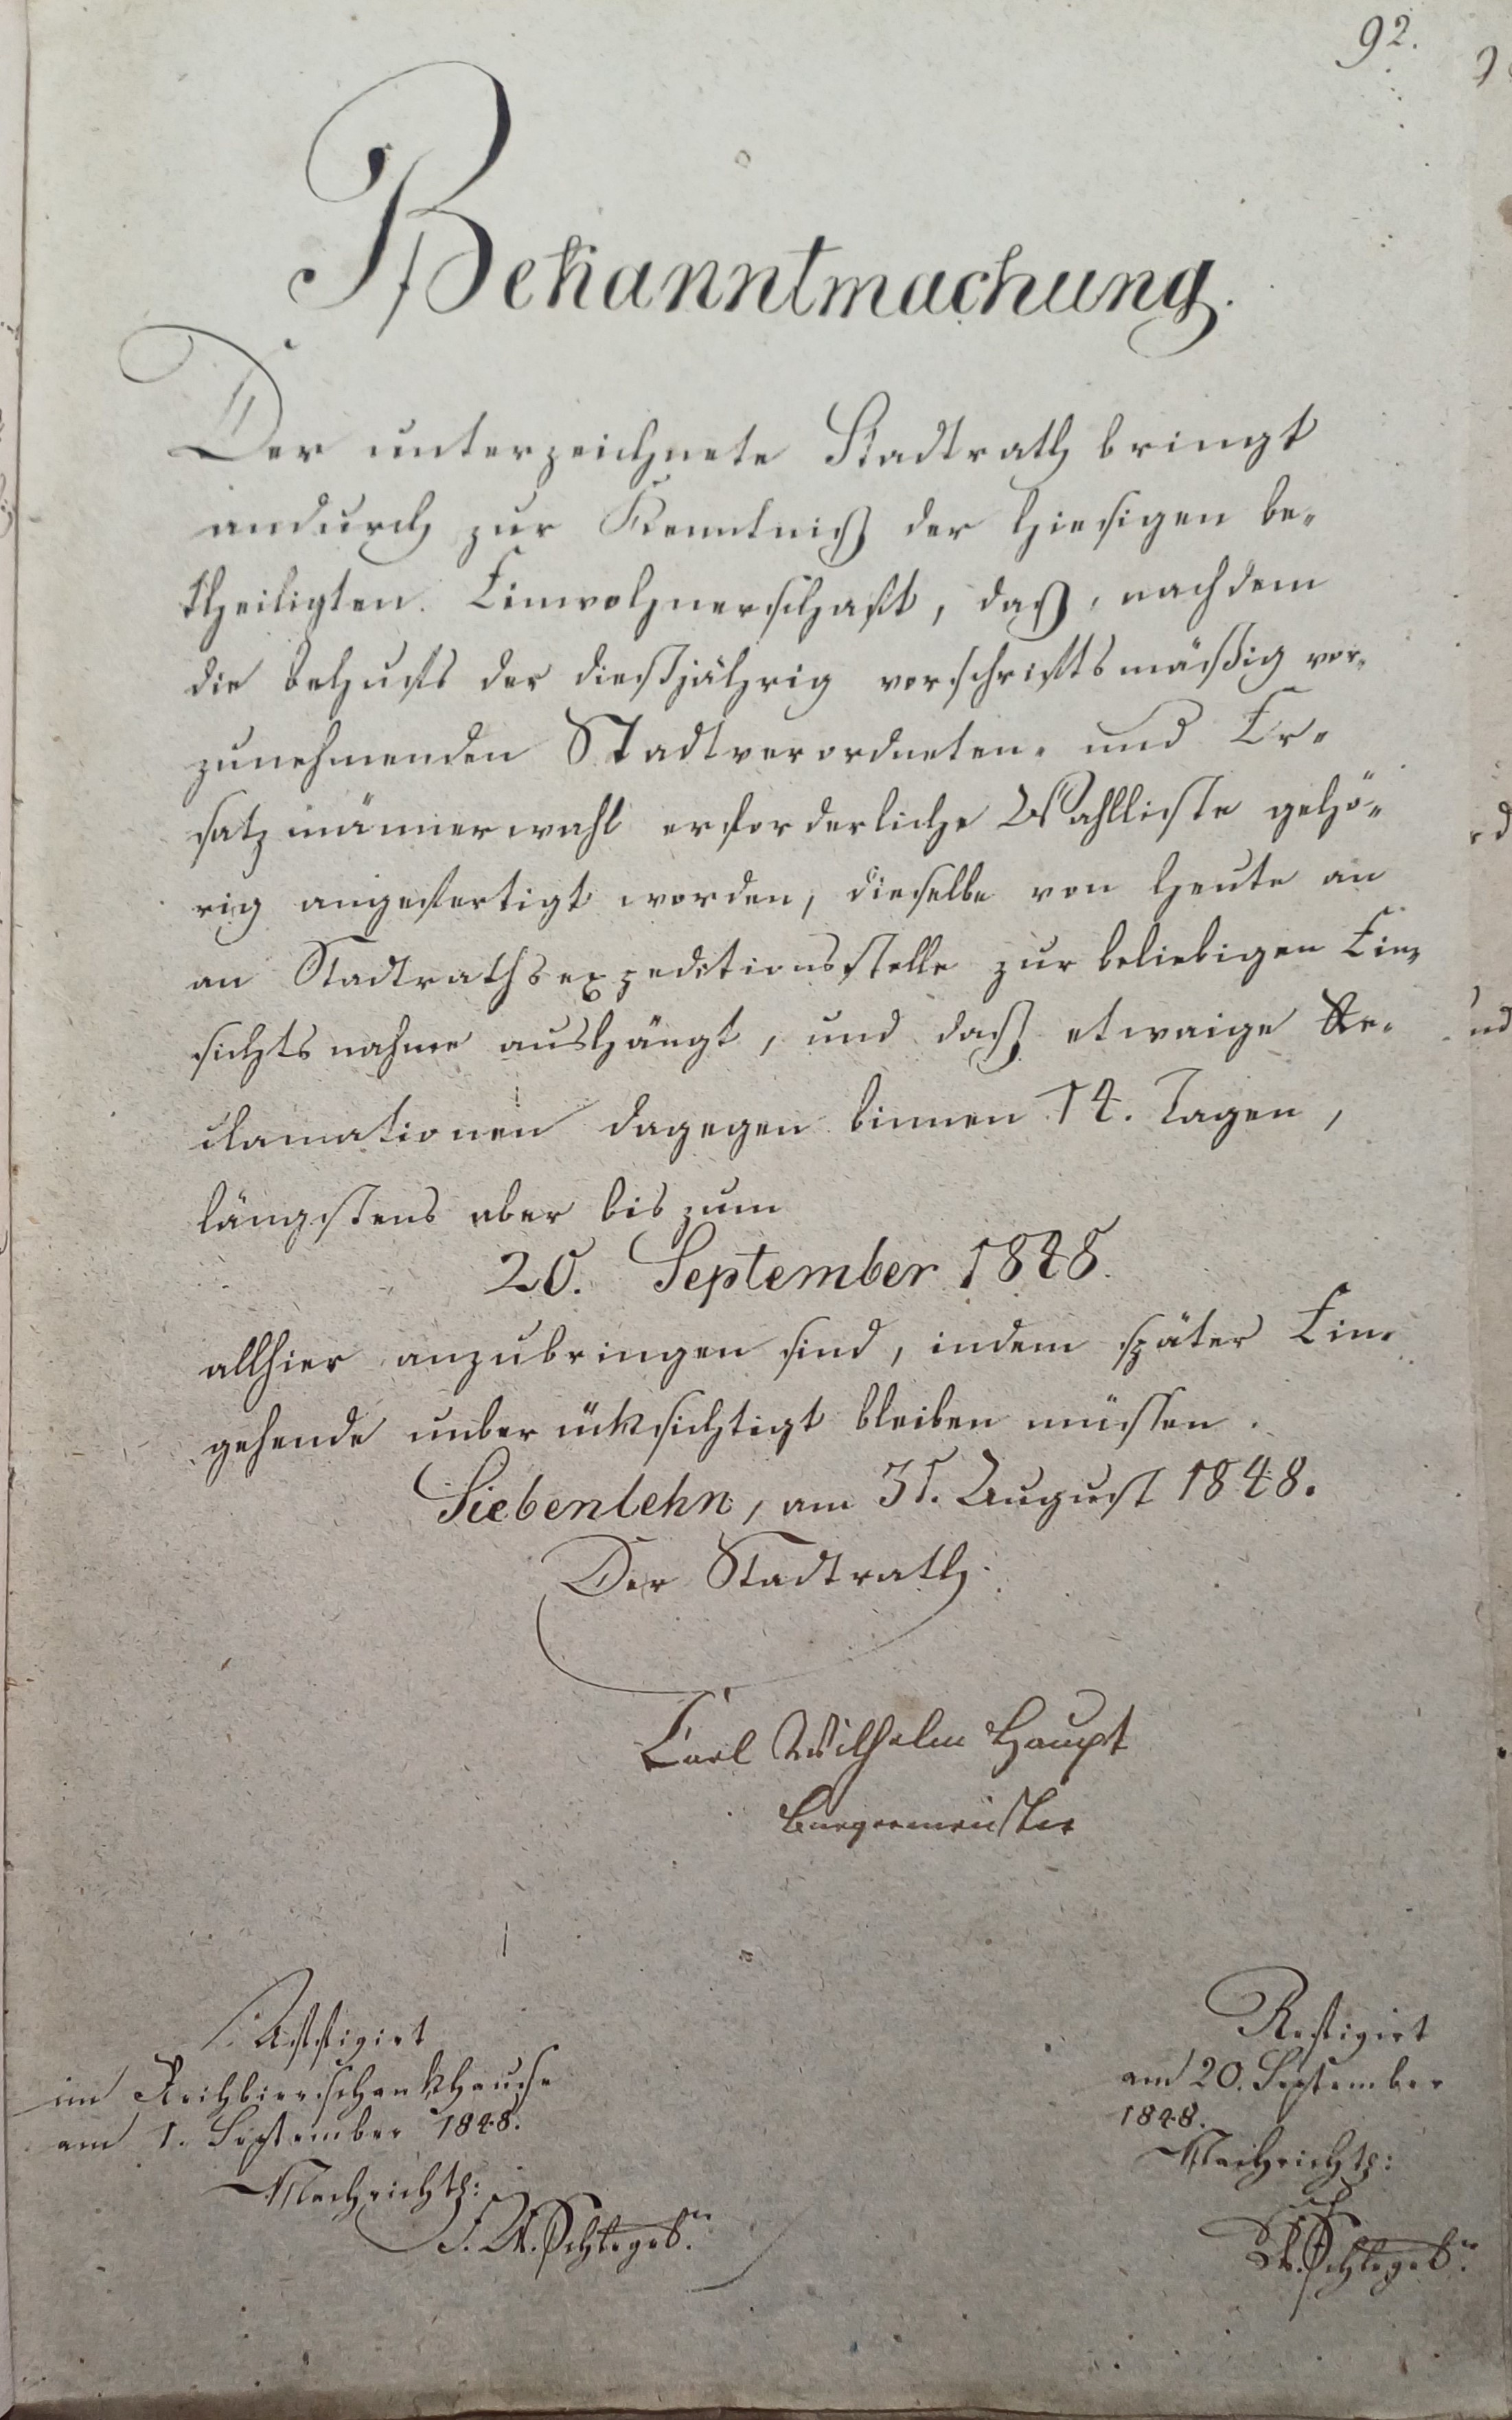 92.
Bekanntmachung.
Der unterzeichnete Stadtrath bringt
andurch zur Kenntniß der hiesigen be-
theiligten Einwohnerschaft, daß, nachdem
die behufs der dießjährig vorschriftsmäßig vor-
zunehmenden Stadtverordneten- und Er-
satzmännerwahl erforderliche Wahlliste gehö-
rig angefertigt worden, dieselbe von heute an
an Stadtrathsexpeditionsstelle zur beliebigen Ein-
sichtsnahme aushängt, und daß etwaige Re-
clamationen dagegen binnen 14. Tagen,
längstens aber bis zum
20. September 1848.
allhier anzubringen sind, indem später Ein-
gehende unberücksichtigt bleiben müssen.
Siebenlehn, am 31. August 1848.
Der Stadtrath.
Carl Wilhelm Haupt
Bürgermeister
Affigirt
im Reihbierschankhause
am 1. September 1848.
Nachrichtl:
Refigirt
am 20. September
1848.
Nachrichtl: